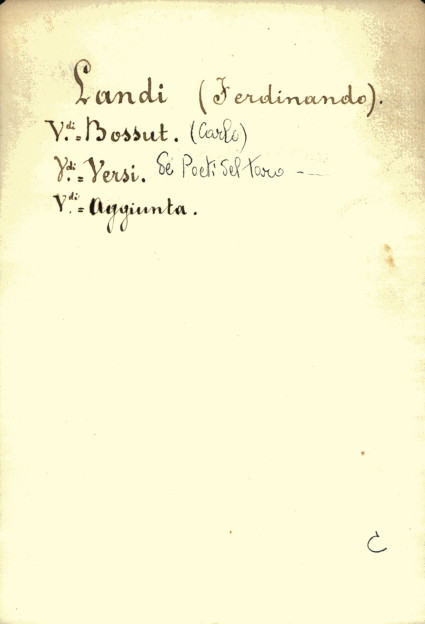 Landi (Ferdinando).
V.di= Bossut. (Carlo)
V.di= Versi. de Poeti del Taro —
V.di= Aggiunta.
C